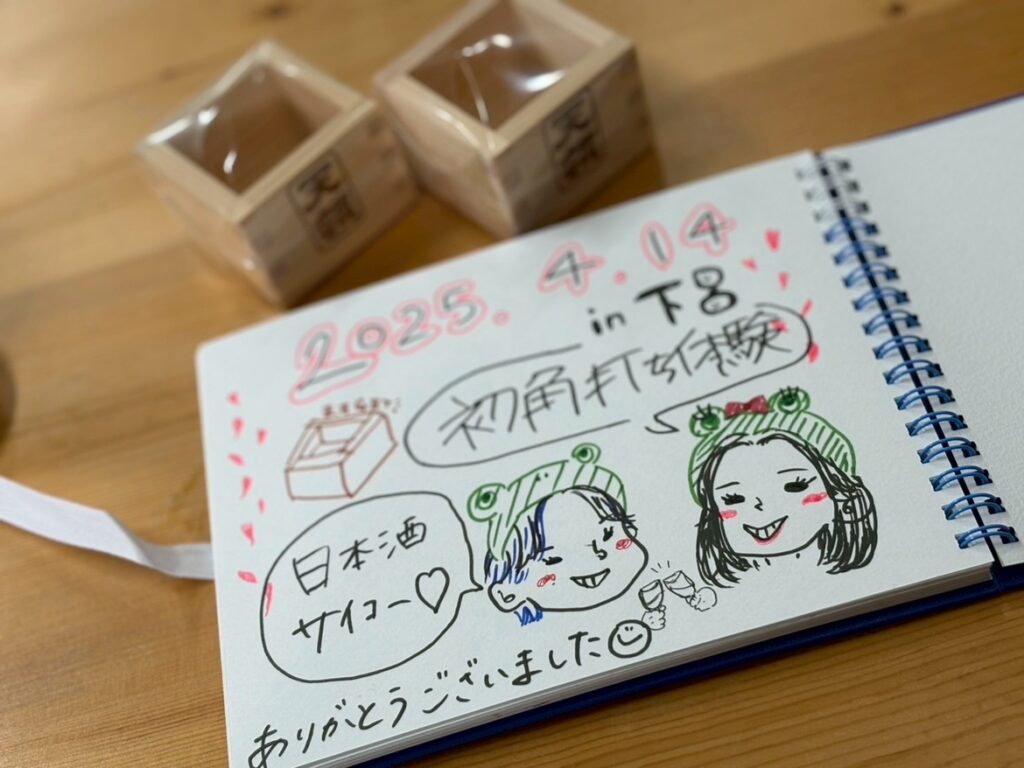 2025. 4. 14
in 下呂
初角打ち体験
日本酒
サイコー♡
ありがとうございました☺